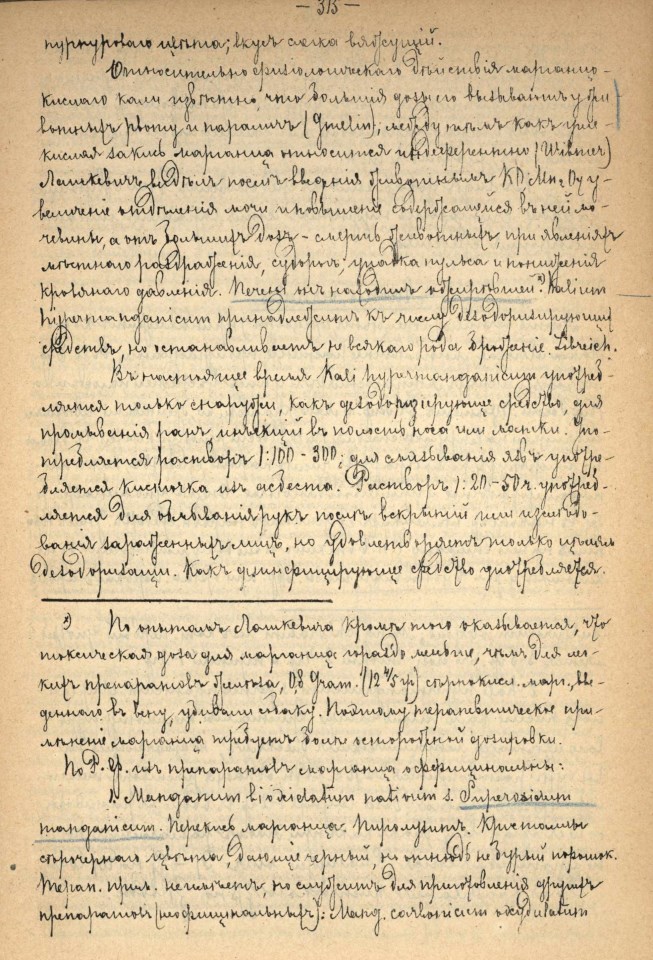 — 315 —
пурпуроваго цвѣта; вкусъ слегка вяжущій.
Относительно физіологическаго дѣйствія марганцо-
кислаго кали извѣстно, что большія дозы его вызываютъ у жи
вотныхъ рвоту и параличъ (Gmelin), между тѣмъ какъ угле-
кислая закись марганца относится индеферентно (Wibmer)
Лашкевичъ видѣлъ послѣ введенія животнымъ КО Mn2 O7 у-
величеніе отдѣленія мочи и повышеніе содержащейся въ ней мо-
чевины, а отъ большихъ дозъ - смерть животныхъ, при явленіяхъ
мѣстнаго раздраженія, судорогъ, упадка пульса и пониженія
кровянаго давленія. Печень их находилъ ожирѣвшей. *) Kalium
hypermanganicum принадлежитъ къ числу дезодоризирующихъ
средствъ, но останавливаетъ не всякаго рода броженіе. Libreich.
Въ настоящее время Kali hypermanganicum употреб-
ляется только снаружи, какъ дезодоризирующее средство, для
промыванія ранъ, инъекцій въ полость носа или матки. Упо-
требляется растворъ 1:100 - 300; для смазыванія язвъ употре-
бляется кисточка изъ асбеста. Растворъ 1:20 - 50 ч. употреб-
ляется для обмыванія рукъ послѣ вскрытій или изслѣдо-
ванія зараженныхъ лицъ, но удовлетворяетъ только цѣлямъ
дезодоризаціи. Какъ дезинфицирующее средство употребляется.
*) По опытамъ Лашкевича кромѣ того оказывается, что
токсическая доза для марганца гораздо меньше, чѣмъ для
препаратовъ желѣза, 0,8 Gram. (12 4/5 гр) сѣрнокисл. марг., вве-
деннаго въ вену, убивали собаку. Поэтому терапевтическое при-
мѣненіе марганца требуетъ болѣе осторожной дозировки.
По Р. Ф. изъ препаратовъ марганца оффицинальны:
1. Manganum bioxidatum nativum s. Superoxidum
manganicum. Перекись марганца. Пиролузитъ. Кристаллы
сѣрочернаго цвѣта, дающіе черный, но отнюдь не бурый порошокъ.
Терап. прим. не имѣетъ, но служитъ для приготовленія другихъ
препаратовъ (неофицинальныхъ): Mang. carbonicum oxydulatum